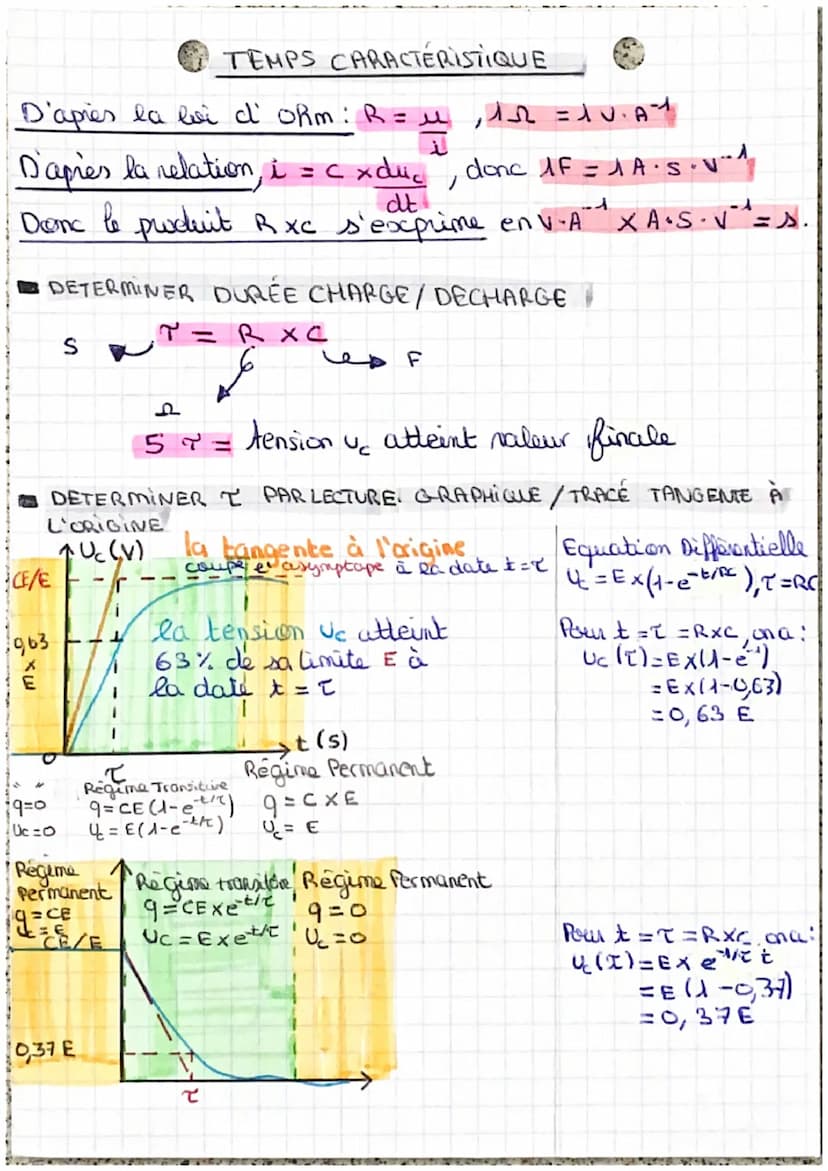 TEMPS CARACTÉRISTIQUE
D'après la loi d'Ohm : R = u/i , 1Ω = 1 V·A⁻¹
D'après la relation, i = C × duc/dt , donc 1F = 1 A·S·V⁻¹
Donc le produit R×C s'exprime en V·A⁻¹ × A·S·V⁻¹ = s.
DETERMINER DURÉE CHARGE/DECHARGE
τ = R × C
S
F
Ω
5 τ = tension uc atteint valeur finale
DETERMINER τ PAR LECTURE GRAPHIQUE / TRACÉ TANGENTE À
L'ORIGINE
Uc(V)
la tangente à l'origine
coupe asymptope à la date t=τ
CE/E
la tension Uc atteint
63% de sa limite E à
la date t = τ
0,63
×
E
0
τ
t(s)
Régime Permanent
Régime Transitoire
" "
q=0
q=CE(1-e^-t/τ)
q = C × E
Uc=0
Uc=E(1-e^-t/τ)
Uc = E
Equation Différentielle
Uc=E×(1-e^-t/RC), τ=RC
Pour t=τ=R×C, on a:
Uc(τ)=E×(1-e⁻¹)
=E×(1-0,63)
=0,63 E
Régime
Permanent
q=CE
Uc=E
CE/E
Régime transitoire
q=CE×e^-t/τ
Uc=E×e^-t/τ
Régime Permanent
q=0
Uc=0
0,37 E
τ
Pour t=τ=R×C, on a:
Uc(τ)=E× e^-1/τ t
=E(1-0,37)
=0,37E